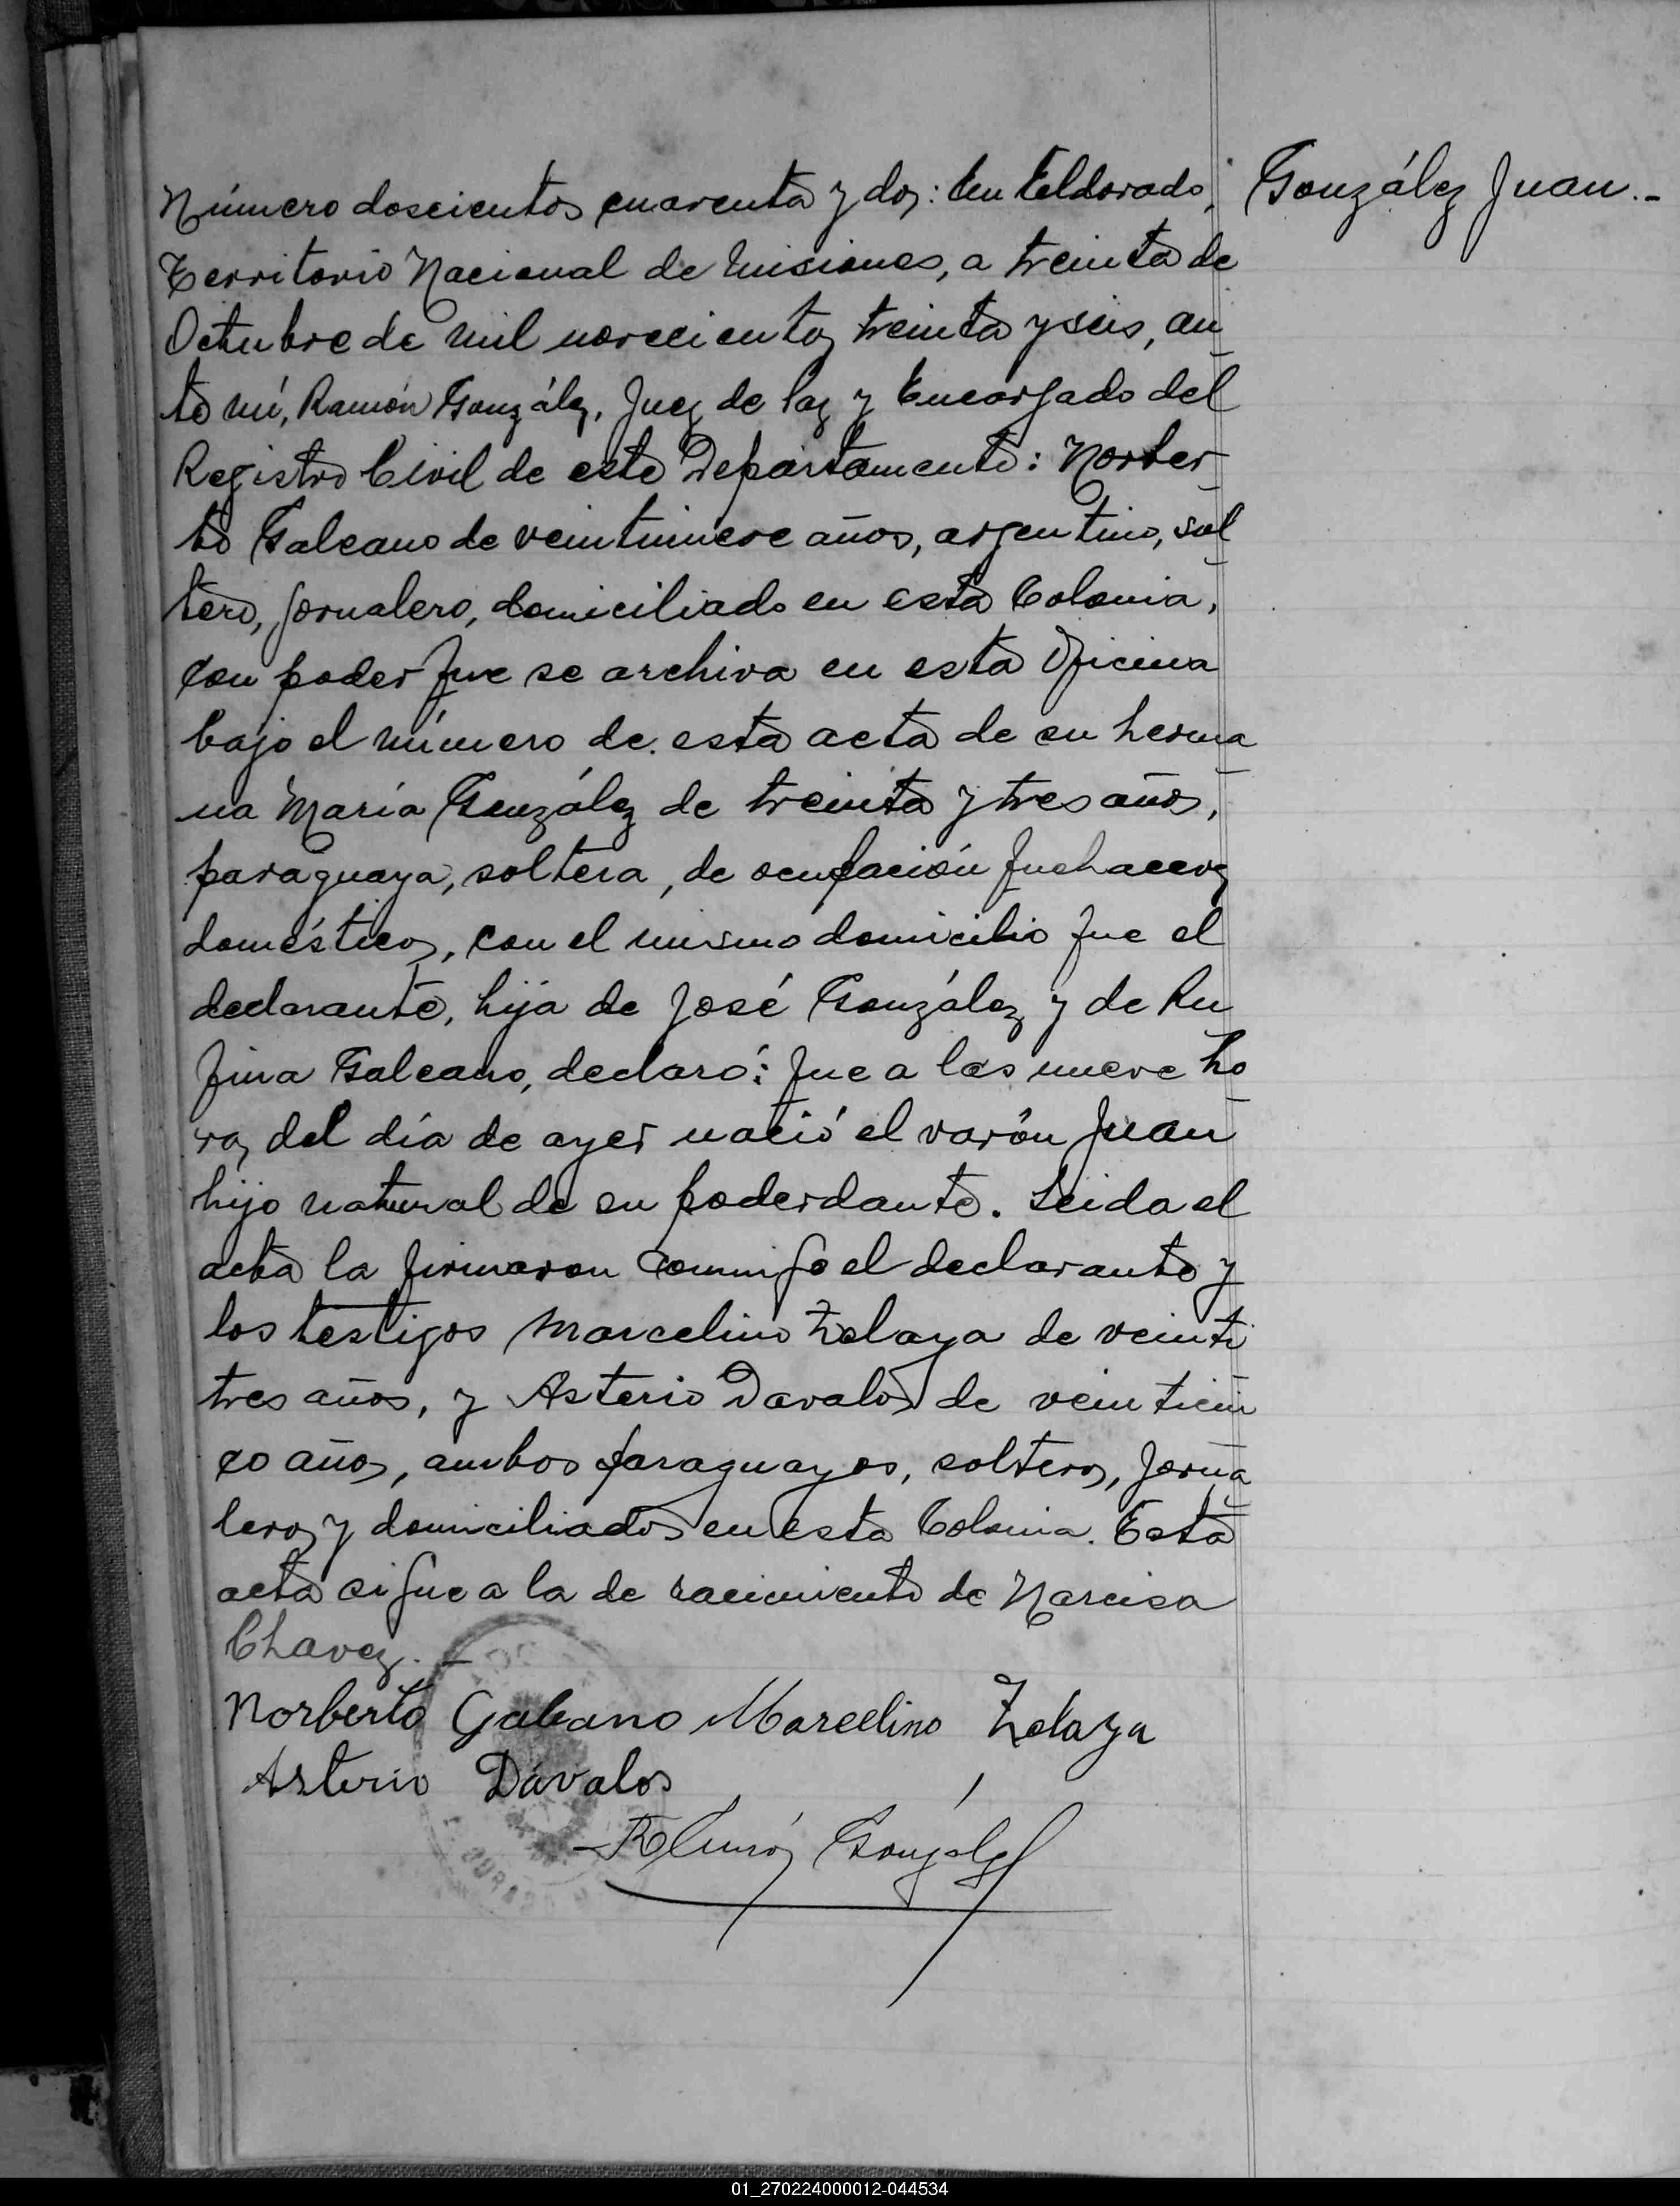 Número doscientos cuarenta y dos: En Eldorado,
González Juan.-
Territorio Nacional de Misiones, a treinta de
Octubre de mil novecientos treinta y seis, an
te mí, Ramón González, Juez de Paz y Encargado del
Registro Civil de este Departamento: Norber
to Galeano de veintinueve años, argentino, sol
tero, jornalero, domiciliado en esta Colonia,
con poder que se archiva en esta Oficina
bajo el número de esta acta de su herma
na María González de treinta y tres años,
paraguaya, soltera, de ocupación quehaceres
domésticos, con el mismo domicilio que el
declarante, hija de José González y de Ru
fina Galeano, declaró: que a las nueve ho
ras del día de ayer nació el varón Juan
hijo natural de su poderdante. Leida el
acta la firmaron conmigo el declarante y
los testigos Marcelino Zelaya de veinti
tres años, y Asterio Davalos de veinticin
co años, ambos paraguayos, solteros, jorna
leros y domiciliados en esta Colonia. Esta
acta sigue a la de nacimiento de Narcisa
Chavez.-
Norberto Galeano Marcelino Zelaya
Asterio Dávalos
Ramón González
01_270224000012-044534